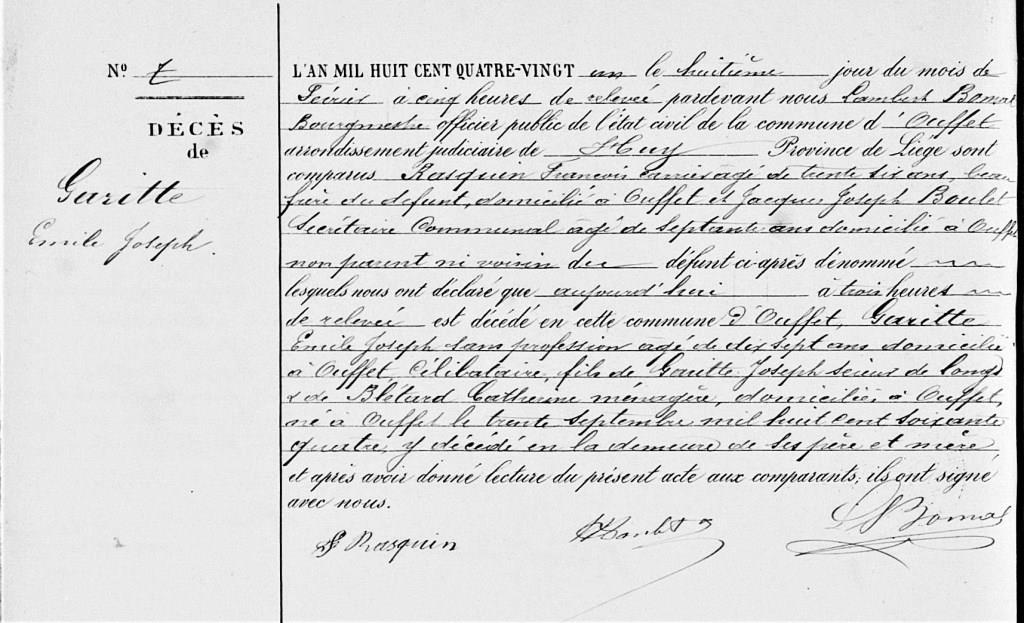 N° 7
DÉCÈS
de
Garitte
Emile Joseph.
L'AN MIL HUIT CENT QUATRE-VINGT un le huitième jour du mois de
Février à cinq heures de relevée pardevant nous Lambert Bomal
Bourgmestre officier public de l'état civil de la commune d'Ouffet
arrondissement judiciaire de Huy Province de Liège sont
comparus Rasquin François carrier agé de trente six ans, beau
frère du défunt, domicilié à Ouffet et Jacques Joseph Boulet
Secrétaire Communal agé de septante ans domicilié à Ouffet
non parent ni voisin du défunt ci-après dénommé
lesquels nous ont déclaré que aujourd'hui a trois heures
de relevée est décédé en cette commune d'Ouffet, Garitte
Emile Joseph sans profession agé de dix sept ans domicilié
à Ouffet, Célibataire, fils de Garitte Joseph scieur de longs
& de Blétard Catherine ménagère, domiciliés à Ouffet,
né à Ouffet le trente septembre mil huit cent soixante
quatre, y décédé en la demeure de ses père et mère
et après avoir donné lecture du présent acte aux comparants, ils ont signé
avec nous.
Rasquin
Bomal